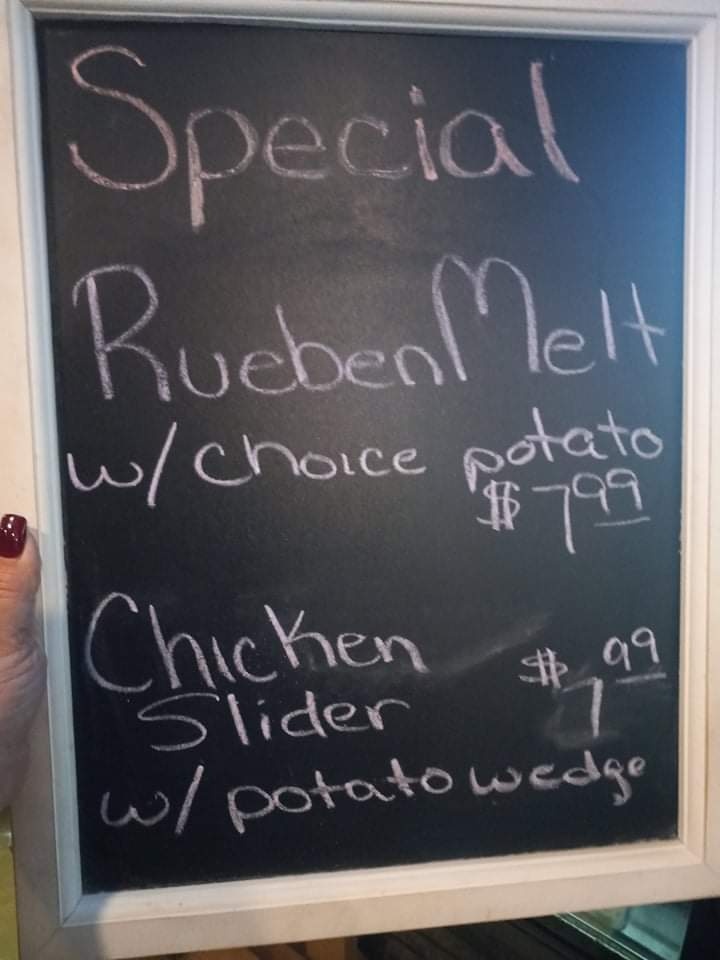 Special
Rueben Melt
w/ choice potato
$7.99
Chicken $7.99
Slider
w/ potato wedge